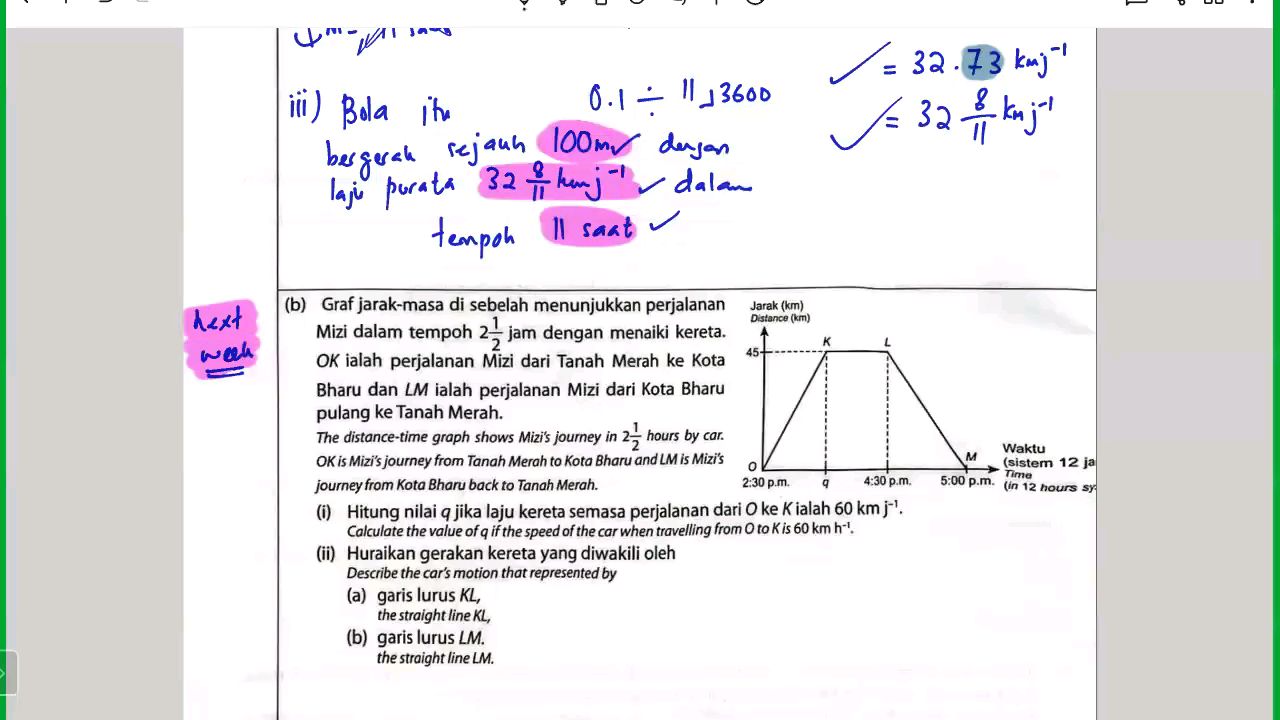 = 32.73 kmj⁻¹
iii) Bola itu
0.1 ÷ 11⌟3600
= 32 8/11 kmj⁻¹
bergerak sejauh 100m dengan
laju purata 32 8/11 kmj⁻¹ dalam
tempoh 11 saat
next
week
(b) Graf jarak-masa di sebelah menunjukkan perjalanan
Mizi dalam tempoh 2 1/2 jam dengan menaiki kereta.
OK ialah perjalanan Mizi dari Tanah Merah ke Kota
Bharu dan LM ialah perjalanan Mizi dari Kota Bharu
pulang ke Tanah Merah.
The distance-time graph shows Mizi's journey in 2 1/2 hours by car.
OK is Mizi's journey from Tanah Merah to Kota Bharu and LM is Mizi's
journey from Kota Bharu back to Tanah Merah.
Jarak (km)
Distance (km)
K L
45
O
M
2:30 p.m. q 4:30 p.m. 5:00 p.m.
Waktu
(sistem 12 ja
Time
(in 12 hours sy
(i) Hitung nilai q jika laju kereta semasa perjalanan dari O ke K ialah 60 km j⁻¹.
Calculate the value of q if the speed of the car when travelling from O to K is 60 km h⁻¹.
(ii) Huraikan gerakan kereta yang diwakili oleh
Describe the car's motion that represented by
(a) garis lurus KL,
the straight line KL,
(b) garis lurus LM.
the straight line LM.